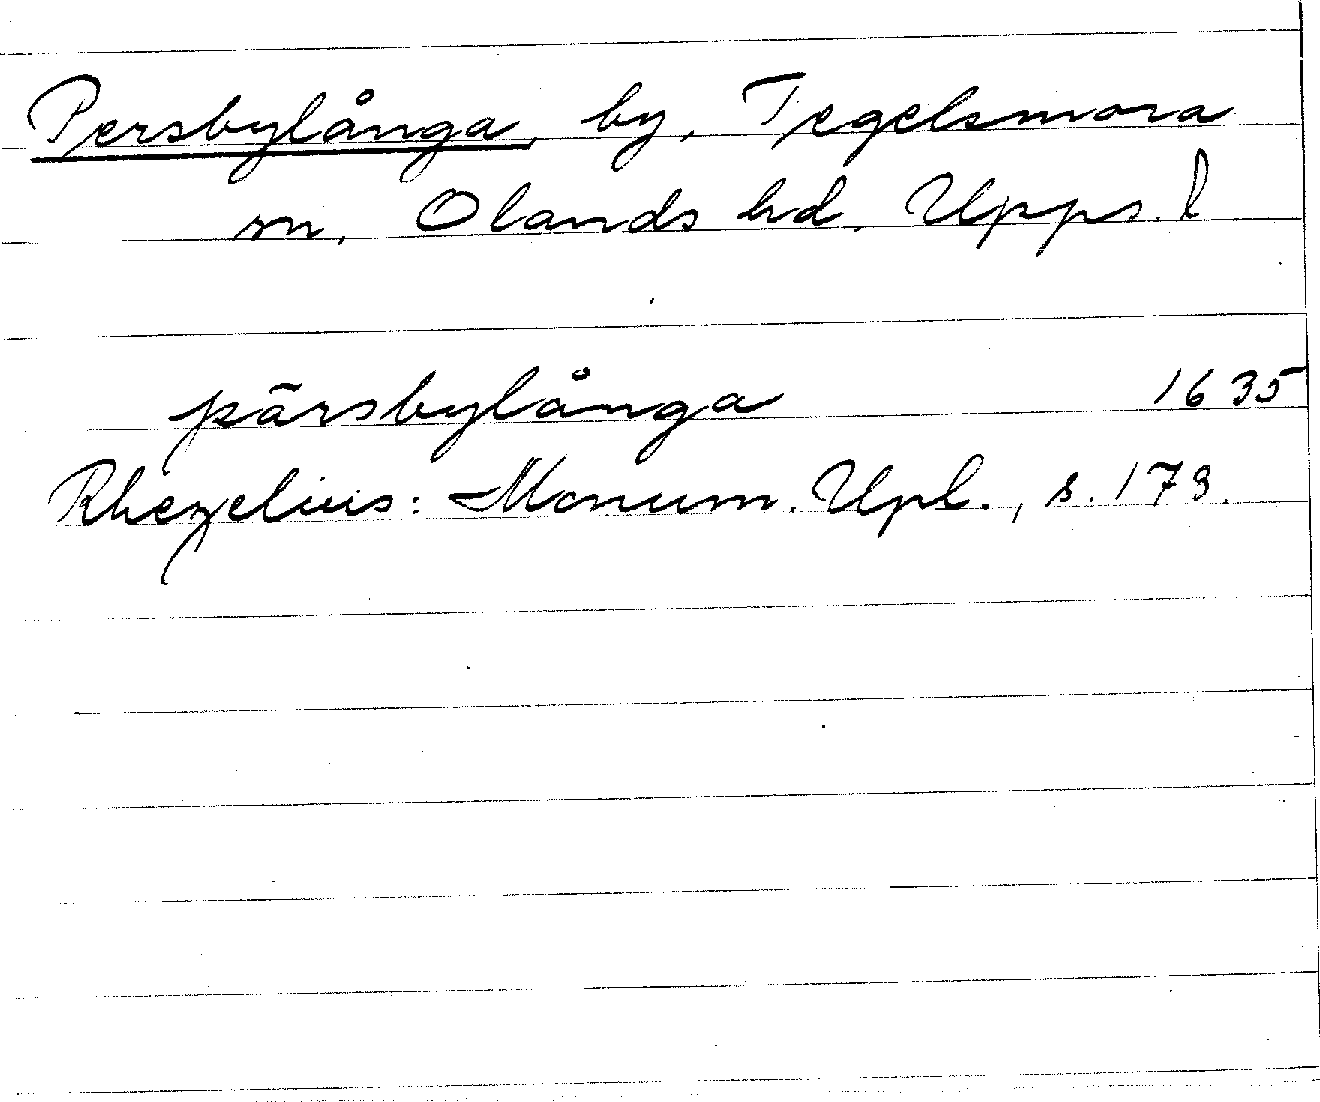 Persbylånga, by, Tegelsmora
sn, Olands hd. Upps. l
pärsbylånga 1635
Rhezelius: Monum. Upl., s. 173.